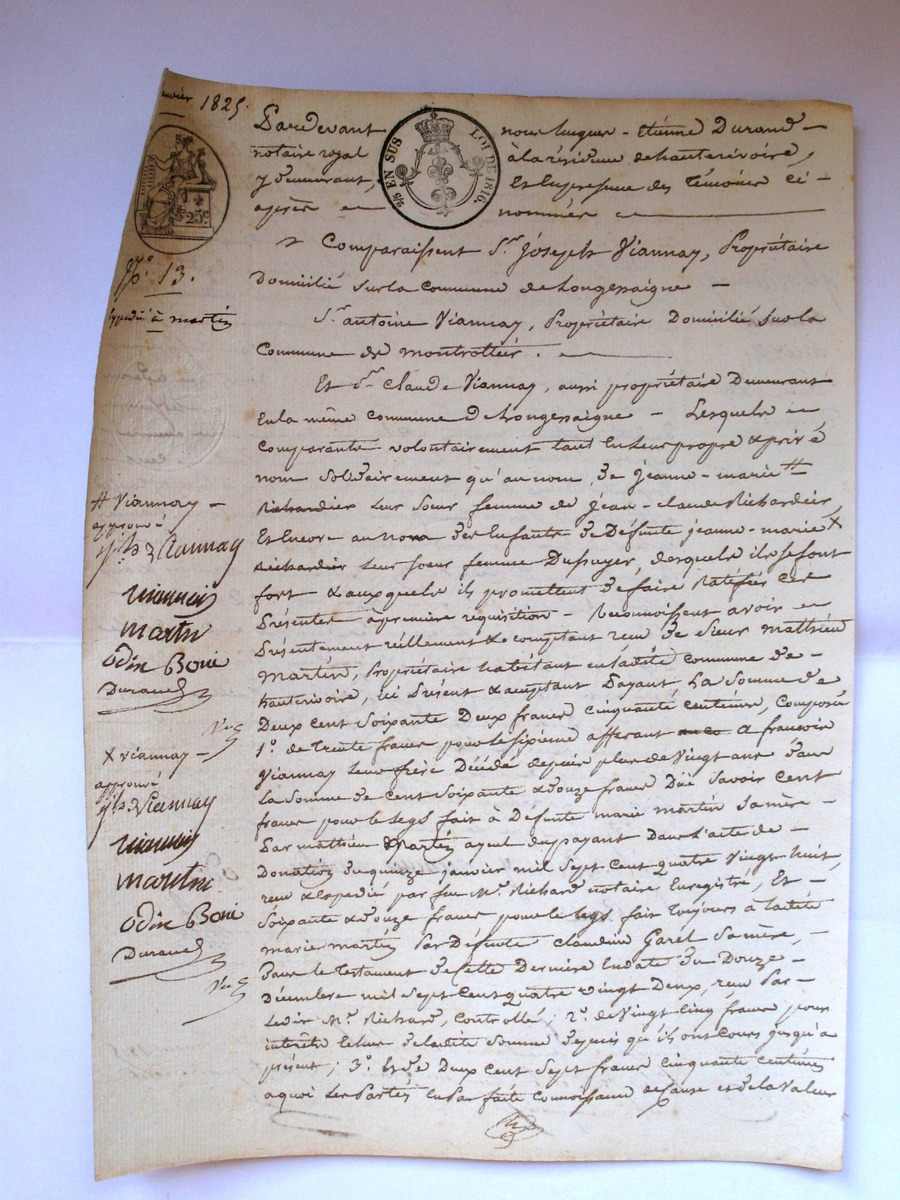 nvier 1825.
25c
2/5 EN SUS
LOI DE 1816.
Pardevant nous hugues - Etienne Durand -
notaire royal à la résidence de hauterivoire,
y demeurant, Et En presence des témoins ci-
après - nommés
Comparaissent Sr. Joseph Viannay, Propriétaire
Domicilié sur la Commune de Longessaigne -
Sr. antoine Viannay, Propriétaire Domicilié sur la
Commune de montrottier.
Et Sr. Claude Viannay, aussi propriétaire Demeurant
En la même Commune de Longessaigne - Lesquels
Comparants volontairement tant En Leur propre & privé
nom Solidairement qu'au nom, de jeanne-marie #
Richardier leur Soeur femme de jean-claude Richardier,
Et Encore au nom des Enfants de Défunte jeanne-marie X
Richardier leur soeur femme Dupuyer, desquels ils se font
fort & auxquels ils promettent de faire Ratifier Ces
Présentes à premiere requisition - Reconnoissent avoir
Présentement réellement & comptant reçu de Sieur mathieu
Martin, Propriétaire habitant en ladite commune de
hauterivoire, ici Présent & acceptant Payant La Somme de
Deux Cent Soixante Deux francs Cinquante Centimes, Composée
1º. de trente francs pour le sixième afferant A francois
Viannay leur frère Décédé depuis plus de Vingt ans dans
la Somme de Cent Soixante & douze francs Due Savoir Cent
francs pour le legs fait à Défunte marie martin Sa mère -
Par mathieu Martin ayeul du payant Dans L'acte de -
Donation du quinze janvier mil Sept Cent quatre Vingt huit,
reçu & Expédié par feu Me. Richard notaire Enregistré, Et -
Soixante & Douze francs pour le legs fait toujours à ladite
marie martin Par Défunte Claudine Garel Sa mère, -
Dans le Testament de cette Dernière En date du Douze -
Décembre mil Sept Cent quatre Vingt Deux, reçu Par -
Ledit Me. Richard, Controllé; 2º. de Vingt Cinq francs pour
intérêts Echus de ladite Somme depuis qu'ils ont Cours jusqu'à
présent; 3º. Et de Deux Cent Sept francs Cinquante Centimes
a quoi Les Parties En Parfaite Connoissance de Cause et de la Valeur
No. 13.
Expédié à Martin
# Viannay -
approuvé
Viannay
Martin
Odin Boni
Durand
X Viannay -
approuvé
Viannay
Martin
Odin Boni
Durand